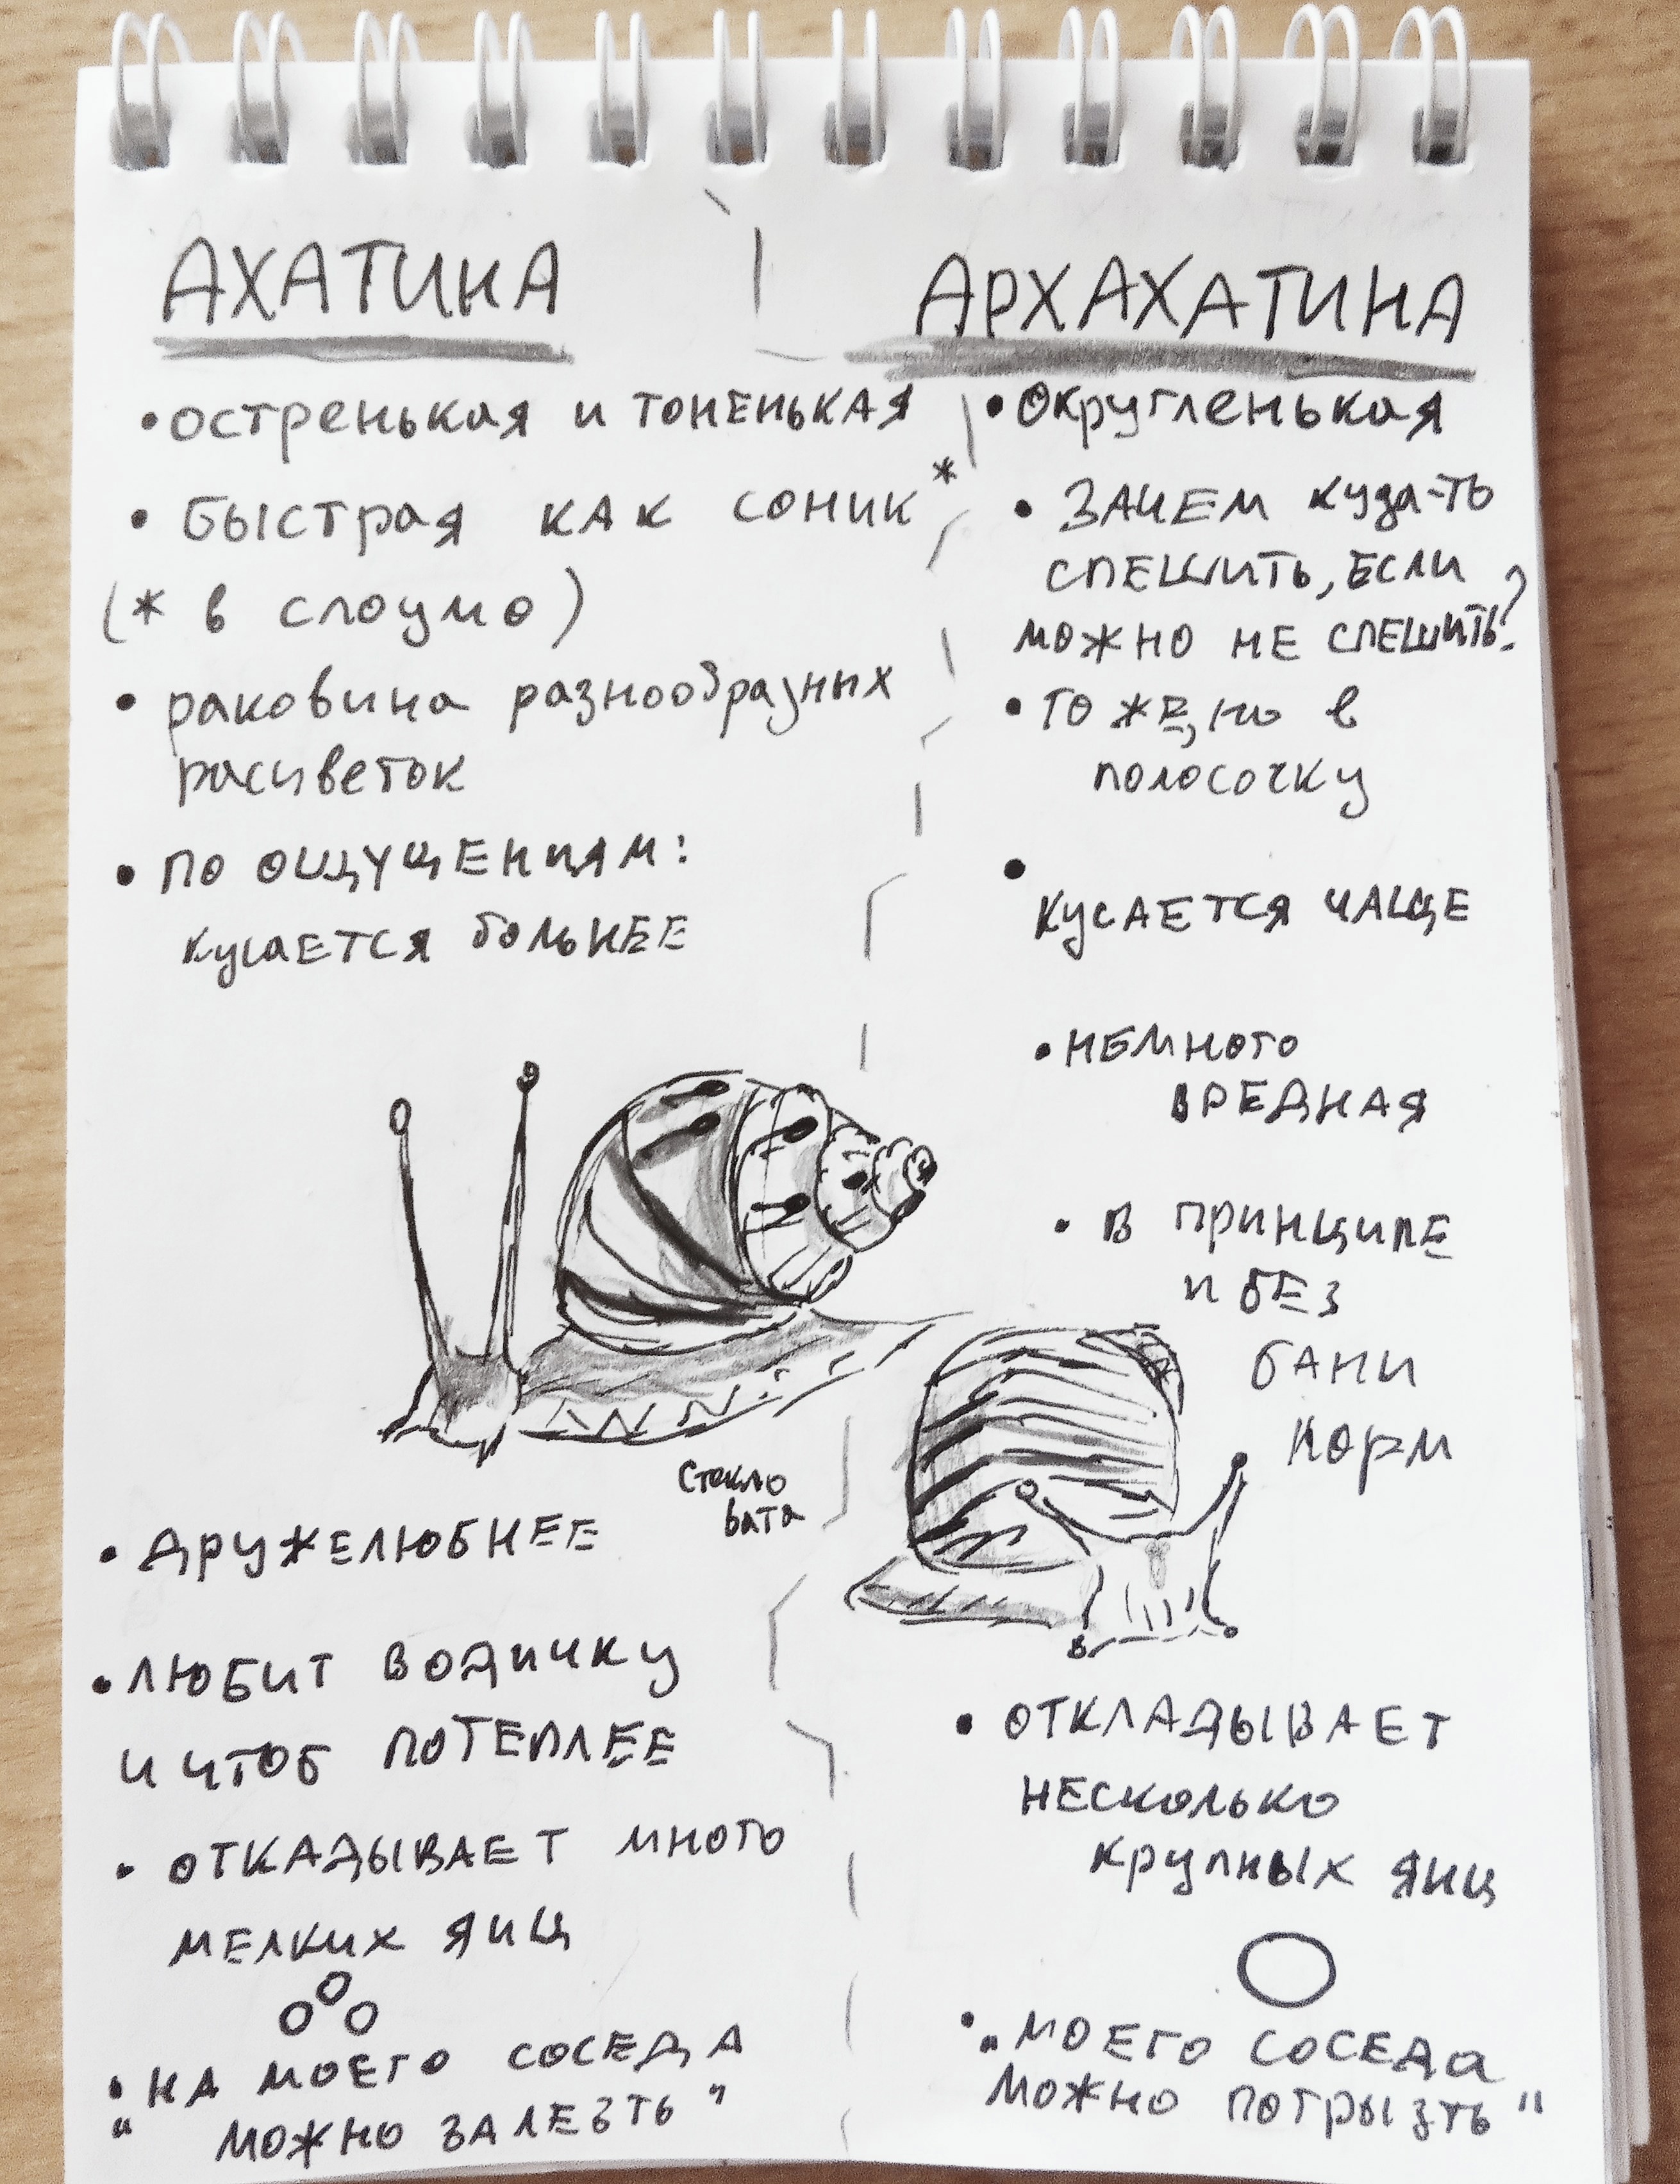 АХАТИНА
• остренькая и тоненькая
• быстрая как соник*
(* в слоумо)
• раковина разнообразных
расцветок
• по ощущениям:
кусается больнее
• дружелюбнее
• любит водичку
и чтоб потеплее
• откадывает много
мелких яиц
• "на моего соседа
можно залезть"
Стекло
вата
АРХАХАТИНА
• округленькая
• зачем куда-то
спешить, если
можно не спешить?
• то же, но в
полосочку
•
кусается чаще
• немного
вредная
• в принципе
и без
бани
норм
• откладывает
несколько
крупных яиц
• "моего соседа
можно погрызть"